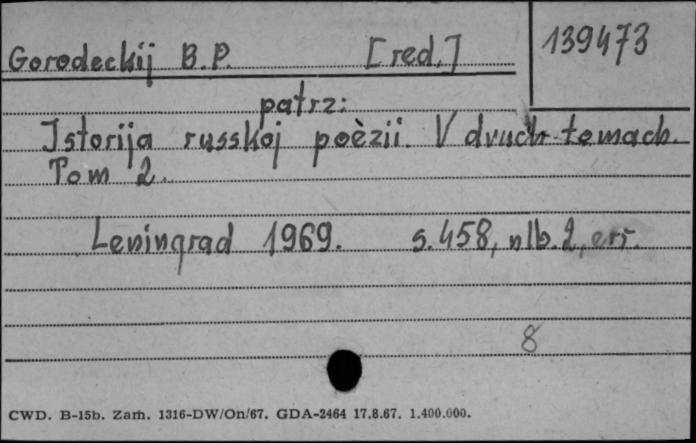 139473
Gorodeckij B.P. [red.]
patrz:
Istorija russkoj poèzii. V dvuch tomach.
Tom 2.
Leningrad 1969. s. 458, nlb. 2, err.
8
CWD. B-15b. Zam. 1316-DW/On/67. GDA-2464 17.8.67. 1.400.000.